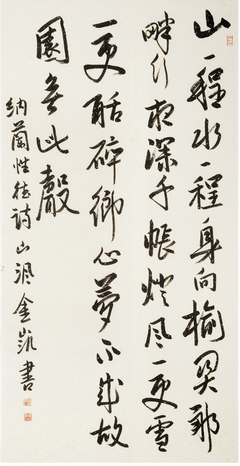 山一程水一程身向榆關那
畔行夜深千帳燈風一更雪
一更聒碎鄉心夢不成故
園無此聲
納蘭性德詩山金書